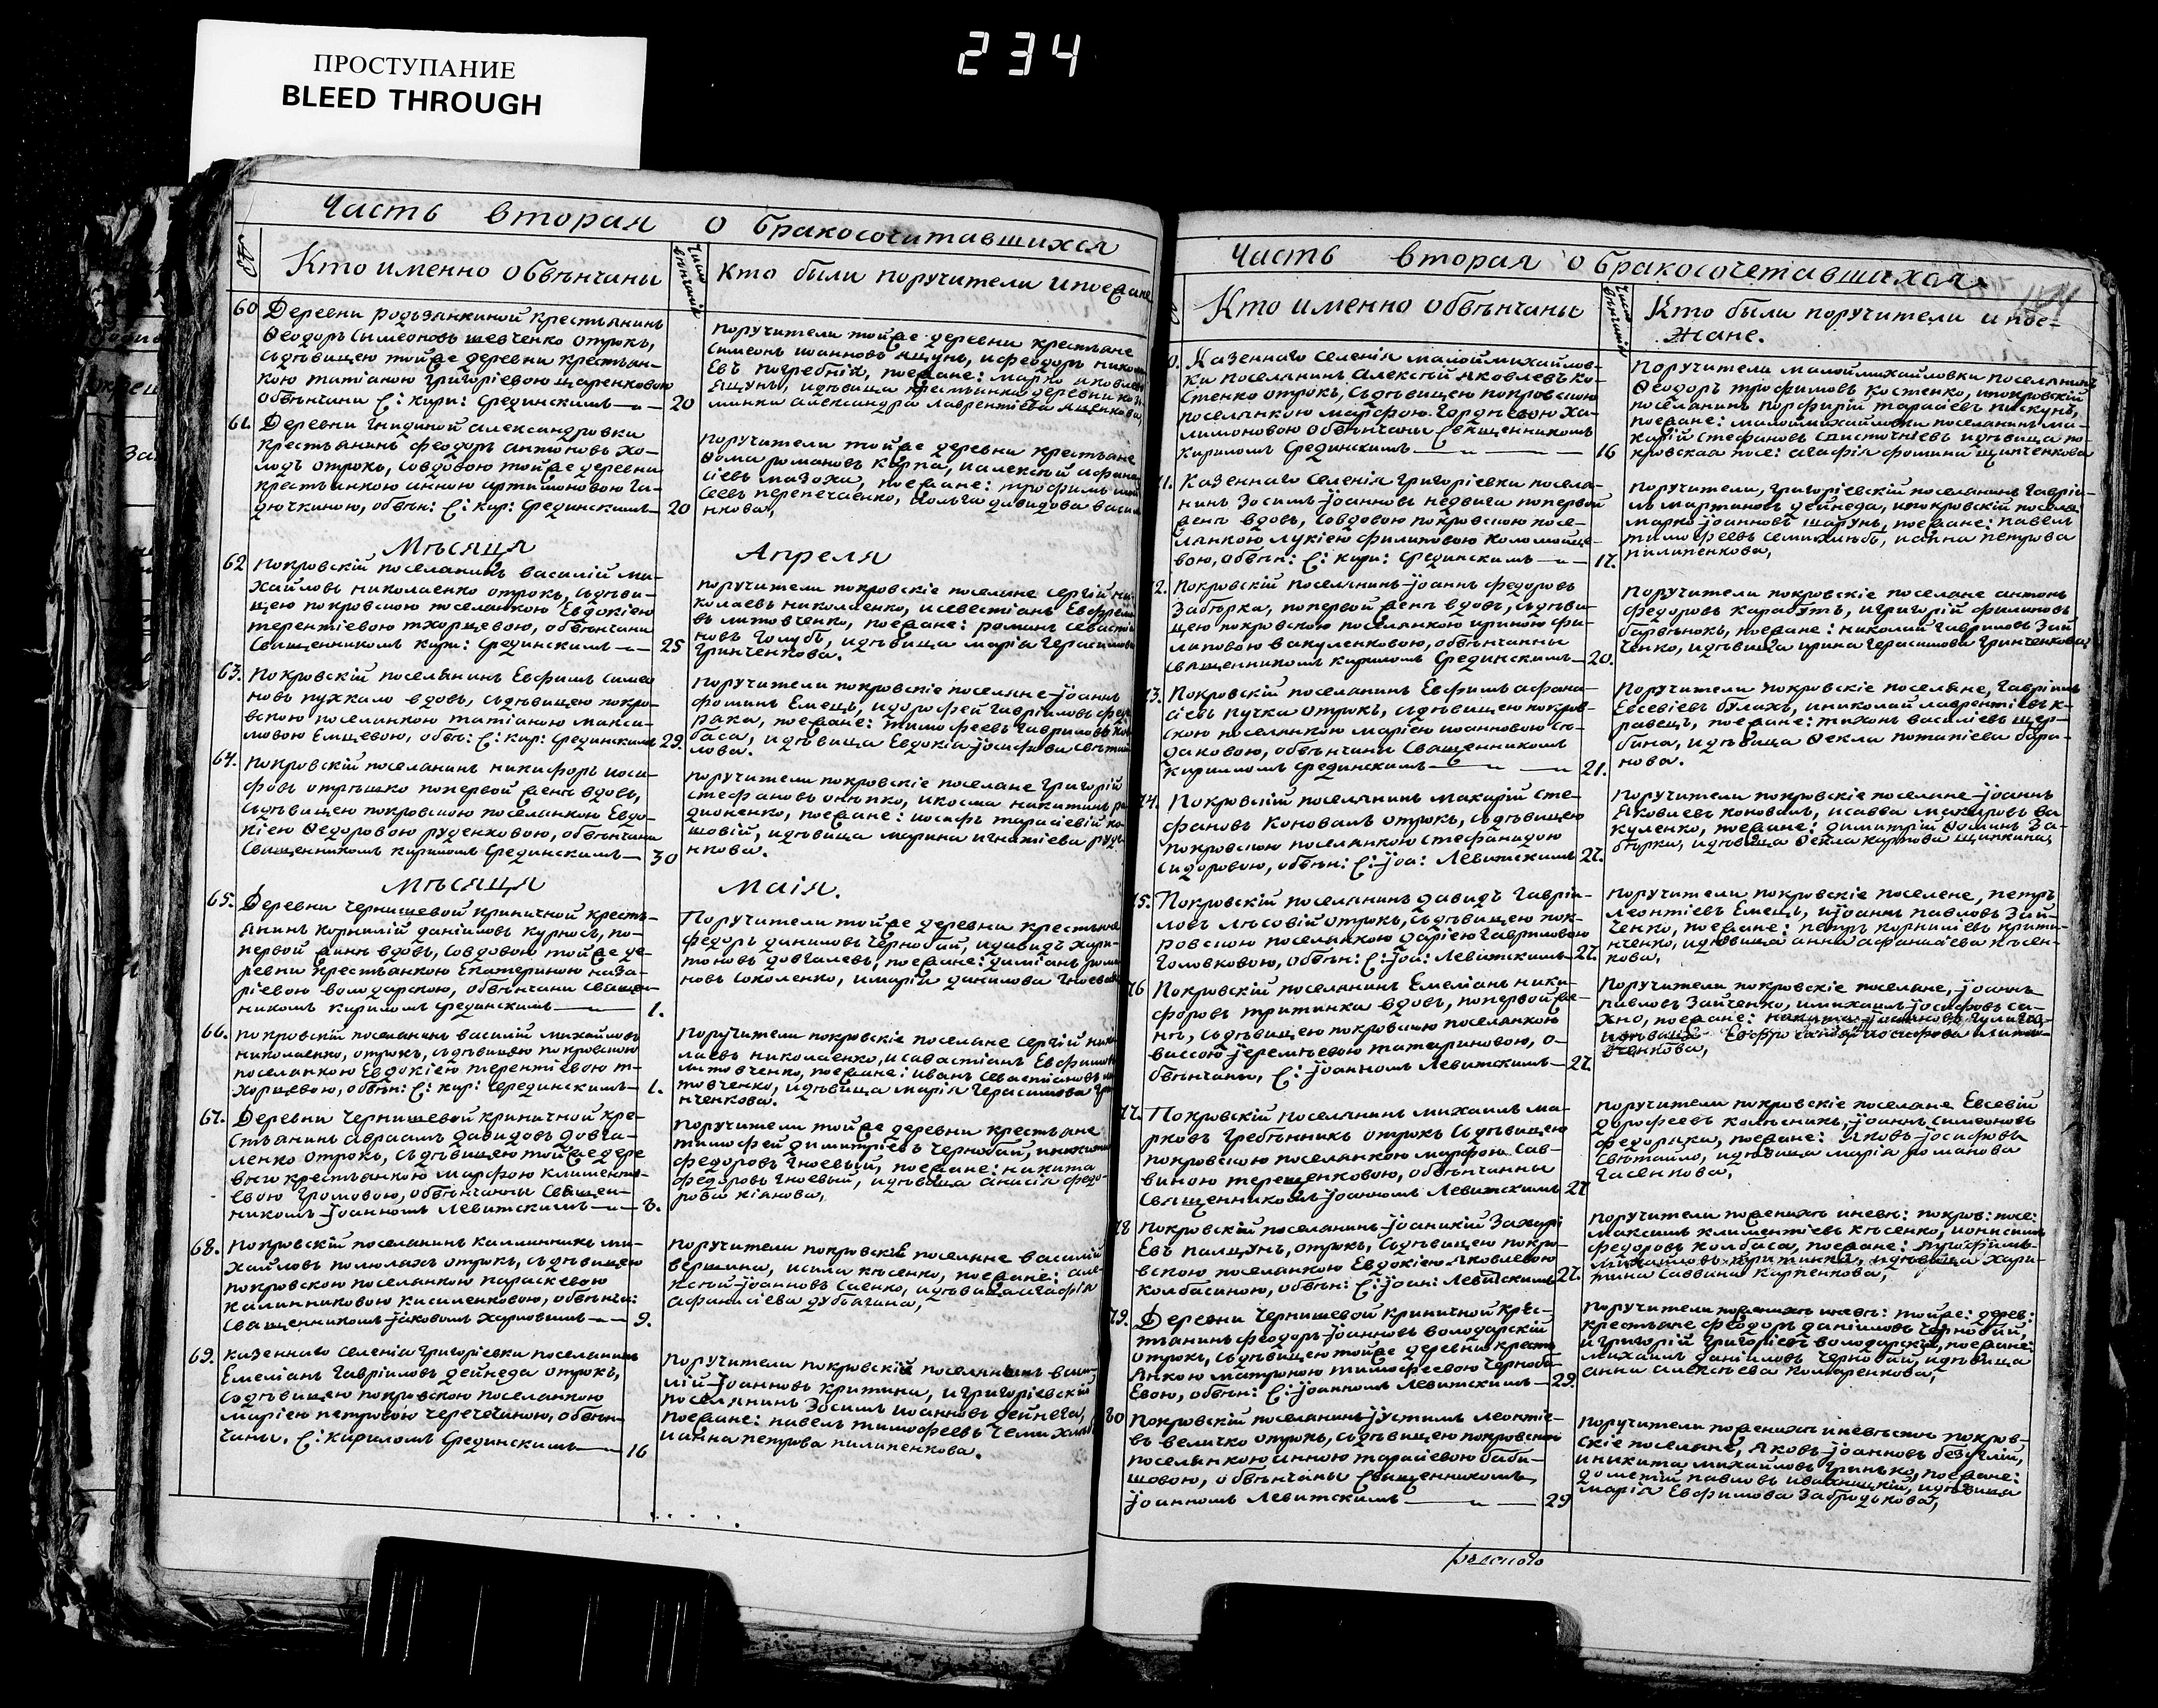 ПРОСТУПАНИЕ
BLEED THROUGH
234
Часть вторая о бракосочитавшихся
№
Кто именно обвѣнчаны
Число вѣнчанія
Кто были поручители и поезжане
60
Деревни
крестьянинъ
Ѳеодоръ Симеоновъ Шевченко отрокъ,
съ дѣвицею тойже деревни крестьян-
кою Татіаною Григоріевою Царенковою
обвѣнчани С: Кири: Срединскимъ
20
поручители тойже деревни крестьяне
Симеонъ Іоанновъ Яцунъ, и Феодоръ
61.
Деревни Гнидиной Александровки
крестьянинъ Феодоръ Антоновъ Хо-
лодъ отрокъ, со вдовою тойже деревни
крестьянкою Анною Артимоновою Га-
дючкиною, обвѣн: С: Кир: Срединскимъ
20
поручители тойже деревни крестьяне
Ѳома Романовъ Карпа, и Алексѣй Афана-
сіевъ Мазоха, поезжане: Трофимъ
Перепечаенко, и Ольга Давидова
Мѣсяца Апреля
62
Покровскій поселанинъ Василій Ми-
хайловъ Николаенко отрокъ, съ дѣви-
цею покровскою поселанкою Евдокіею
Терентіевою Тхорцевою, обвѣнчани
Священникомъ Кири: Срединскимъ
25
поручители покровскіе поселане Сергій Ни-
колаевъ Николаенко, и Севестіанъ
Литовченко, поезжане: Романъ
Голубъ, и дѣвица Марія Герасимова
Гринченкова.
63.
Покровскій поселянинъ Евфимъ Симео
новъ Пужкало вдовъ, съ дѣвицею покро-
вскою поселанкою Татіаною Макси-
мовою Емцевою, обвѣ: С: Кир: Срединскимъ
29.
поручители покровскіе поселяне Іоаннъ
Фоминъ Емецъ, и Дорофей Гавріиловъ
поезжане: Тимофеевъ Гавриловъ
баса, и дѣвица Евдокія Іосифова
64.
Покровскій поселанинъ Никифоръ Иоси-
фовъ Отрѣшко по первой женѣ вдовъ,
съ дѣвицею покровскою поселанкою Евдо-
кіею Ѳедоровою Руденковою, обвѣнчани
Священникомъ Кириломъ Срединскимъ
30
поручители покровскіе поселане Григорій
Стефановъ Онѣпко, и Косма Никитинъ
дионенко, поезжане: Иосифъ Тарасіевій
шовій, и дѣвица Марина Игнатіева
нкова.
Мѣсяца Маія.
65.
Деревни Чернишевой Криничной кресть-
янинъ Корнилій Даніиловъ Курносъ, по-
первой женѣ вдовъ, со вдовою тойже де-
ревни крестьянкою Екатериною Наза-
ріевою Володарскою, обвѣнчани Священ-
никомъ Кириломъ Срединскимъ
1.
Поручители тойже деревни крестьяне
Федоръ Даниловъ Чернобай, и Давидъ Хари-
тоновъ Довгалевъ, поезжане: Даміанъ
новъ Соколенко, и Марія Данилова
66.
Покровскій поселанинъ Василій Михайловъ
Николаенко, отрокъ, съ дѣвицею покровскою
поселанкою Евдокіею Терентіевою Т-
хорцевою, обвѣн: С: Кир: Срединскимъ
1.
Поручители покровскіе поселане Сергій
лаевъ Николаенко, и Савастіанъ
Литовченко, поезжане: Иванъ Севастіановъ
товченко, и дѣвица Марія Герасимова
нченкова.
67.
Деревни Чернишевой Криничной кре-
стьанинъ Авраамъ Давидовъ Довга-
ленко отрокъ, съ дѣвицею тойже дере
вни крестьянкою Марфою Климентіе-
евою Громовою, обвѣнчанни Священ-
никомъ Іоанномъ Левитскимъ
8.
Поручители тойже деревни крестьяне
Тимофей Димитріевъ Чернобай, и
Федоровъ Гноевый, поезжане: Никита
Федоровъ Гноевый, и дѣвица Анисія Федо-
рова Кіянова,
68.
Покровскій поселанинъ Каллинникъ Ми-
хайловъ Полюлахъ отрокъ, съ дѣвицею
покровскою поселанкою Параскевою
Калинниковою Кисиленковою, обвѣнч:
Священникомъ Іаковомъ Харповимъ
9.
Поручители покровскіе поселяне Василій
Вершина, и Сила Кѣсенко, поезжане: Але-
ксѣй Іоанновъ Саенко, и дѣвица Агафія
Афанасіева Дубягина,
69.
Казеннаго селенія Григоріевки поселанинъ
Емеліанъ Гавріиловъ Дейнеда отрокъ,
со дѣвицею покровскою поселанкою
Маріею Петровою Черечениною, обвѣн-
чани, С: Кириломъ Срединскимъ
16
Поручители покровскій поселянинъ Васи-
лій Іоанновъ Критина, и Григоріевскій
поселянинъ Зосимъ Иоанновъ Дейнега,
поезжане: Павелъ Тимофеевъ Семихлѣб
и Анна Петрова Пилипенкова.
Часть вторая о бракосочетавшихся
Кто именно обвѣнчаны
Число вѣнчанія
Кто были поручители и пое-
жане.
0.
Казеннаго селенія Малоймихайлов-
ки поселянинъ Алексѣй Яковлевъ Ко-
стенко отрокъ, съ дѣвицею покровскою
поселянкою Марфою Гордѣевою Ха-
лимоновою обвѣнчаны Священникомъ
Кириломъ Срединскимъ
16
Поручители Малоймихайловки поселянинъ
Ѳеодоръ Трофимовъ Костенко, и покровскій
поселянинъ Порфирій Тарасіевъ Пискунъ,
поезжане: Малоймихайловки поселанинъ Ма-
карій Стефановъ
и дѣвица по-
кровская посе: Агафія Фомина Щипченкова
71.
Казеннаго селенія Григоріевки посела-
нинъ Зосимъ Іоанновъ Недвига по первой
женѣ вдовъ, со вдовою покровскою посе-
лянкою Лукіею Филиповою Коломойце-
вою, обвѣн: С: Кири: Срединскимъ
17.
Поручители, Григоріевскій поселанинъ Гавріи-
лъ Мартановъ Дейнеда, и покровскій посела
Марко Іоанновъ Шарунъ, поезжане: Павелъ
Тимофеевъ Семихлѣбъ, и Анна Петрова
Пилипенкова,
72.
Покровскій поселянинъ Іоаннъ Федоровъ
Забѣрка, по первой женѣ вдовъ, съ дѣви-
цею покровскою поселянкою Ириною Фи-
липовою Вакуленковою, обвѣнчанны
Священникомъ Кириломъ Срединскимъ
20.
Поручители покровскіе поселане Антонъ
Федоровъ Карабутъ, и Григорій Филиповъ
Барвѣнокъ, поезжане: Николай Гавриловъ Зай
ченко, и дѣвица Ирина Герасимова Гринченкова
73.
Покровскій поселанинъ Евфимъ Афана-
сіевъ Пучка отрокъ, съ дѣвицею покров-
скою поселанкою Маріею Иоанновою Съ-
даковою, обвѣнчани Священникомъ
Кирилломъ Срединскимъ
21.
Поручители покровскіе поселяне, Гавріилъ
Евсевіевъ Булахъ, и Николай Лаврентіевъ К-
равецъ, поезжане: Тихонъ Василіевъ Щер-
бина, и дѣвица Ѳекла Потапіева Бара-
нова.
74.
Покровскій поселянинъ Макарій Сте-
фановъ Коновалъ отрокъ, съ дѣвицею
покровскою поселанкою Стефанидою
Сидоровою, обвѣн: С: Іоа: Левитскимъ
27.
Поручители покровскіе поселане Іоаннъ
Яковлевъ Коновалъ, и Савва Макаровъ Ва
куленко, поезжане: Димитрій Ѳоминъ За-
бѣрка, и дѣвица Ѳекла Карпова Щипкина,
75.
Покровскій поселянинъ Давидъ Гавріи-
ловъ Лѣсовій отрокъ, съ дѣвицею пок-
ровскою поселянкою Даріею Гавриловою
Головковою, обвѣн: С: Іоа: Левитскимъ
27.
Поручители покровскіе поселене, Петръ
Леонтіевъ Емецъ, и Іоаннъ Павловъ Зай-
ченко, поезжане: Петръ Корниліевъ Крити-
нченко, и дѣвица Анна Афанасіева Кѣсен-
кова,
76
Покровскій поселанинъ Емеліанъ Ники-
форовъ Тритинка вдовъ, по первой же-
нѣ, съ дѣвицею покровскою поселянкою
Вассою Іеремѣевою Татариновою, о-
бвѣнчаны, С: Іоанномъ Левитскимъ
27.
Поручители покровскіе поселане, Іоаннъ
Павловъ Зайченко, и Михаилъ Іосифовъ Са-
хно, поезжане:
и дѣвица Евфросинія Иосифова Литов-
ченкова,
77.
Покровскій поселянинъ Михаилъ Ма-
рковъ Гребѣнникъ отрокъ съ дѣвицею
покровскою поселянкою Марфою Сав-
виною Терещенковою, обвѣнчанны
Священникомъ Іоанномъ Левитскимъ
27
Поручители покровскіе поселане Евсевій
Дорофеевъ Колѣсникъ, Іоаннъ Симеоновъ
Федорака, поезжане: Яковъ Іосифовъ
Свѣтайло, и дѣвица Марія Романова
Гасенкова,
78
Покровскій поселанинъ Іоаникій Захарі
евъ Палцунъ, отрокъ, съ дѣвицею покро-
вскою поселанкою Евдокіею Яковлевою
Колбасиною, обвѣн: С: Іоан: Левитскимъ
27.
Поручители по женихѣ и невѣ: покров: посе:
Максимъ Климентіевъ Кѣсенко, и Онисимъ
Федоровъ Колбаса, поезжане:
Михайловъ Критинка, и дѣвица Хари-
тина Саввина Карпенкова,
79.
Деревни Чернишевой Криничной крес-
тьанинъ Феодоръ Іоанновъ Володарскій
отрокъ, съ дѣвицею тойже деревни кресть
янкою Матроною Тимофеевою Черноба-
евою, обвѣн: С: Іоанномъ Левитскимъ
29.
Поручители по женихѣ и невѣ: тойже: дерев:
крестьяне Феодоръ Даніиловъ Чернобай,
и Григорій Григоріевъ Володарскій, поезжане:
Михаилъ Даніиловъ Чернобай, и дѣвица
Анна Алексѣева Комаренкова,
80
Покровскій поселанинъ Іустимъ Леонтіе-
въ Величко отрокъ, съ дѣвицею покровской
поселянкою Анною Тарасіевою Баби-
шовою, обвѣнчаны Священникомъ
Іоанномъ Левитскимъ
29
Поручители по женихѣ и невѣстѣ покров-
скіе поселяне, Яковъ Іоанновъ Безуглій,
и Никита Михайловъ Гринько, поезжане:
Дометій Павловъ Ивахницкій, и дѣвица
Марія Евфимова Забродкова,